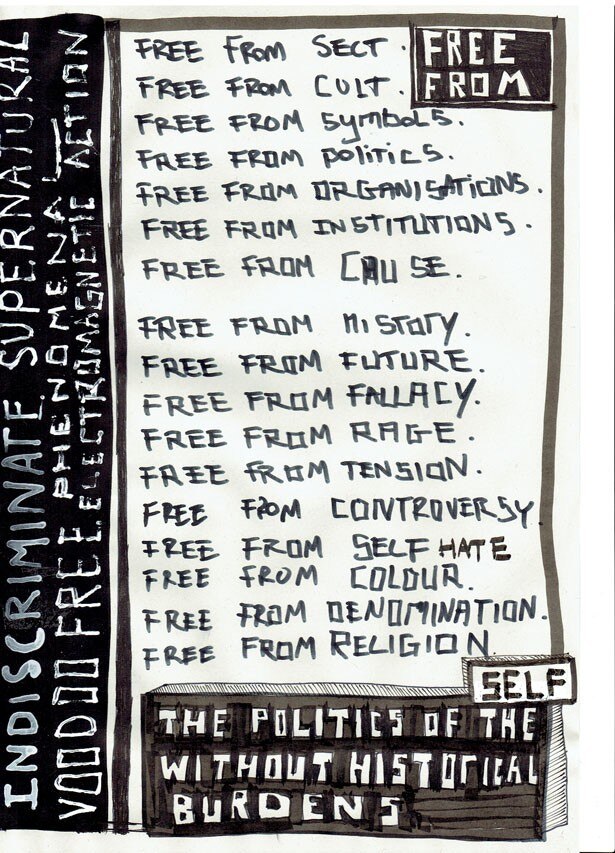 INDISCRIMINATE SUPERNATURAL
VOODOO FREE PHENOMENAL
ELECTROMAGNETIC ACTION
FREE FROM
FREE FROM SECT.
FREE FROM CULT.
FREE FROM SYMBOLS.
FREE FROM POLITICS.
FREE FROM ORGANISATIONS.
FREE FROM INSTITUTIONS.
FREE FROM CAUSE.
FREE FROM HISTORY.
FREE FROM FUTURE.
FREE FROM FALLACY.
FREE FROM RAGE.
FREE FROM TENSION.
FREE FROM CONTROVERSY
FREE FROM SELF HATE
FREE FROM COLOUR.
FREE FROM DENOMINATION.
FREE FROM RELIGION.
SELF
THE POLITICS OF THE
WITHOUT HISTORICAL
BURDENS